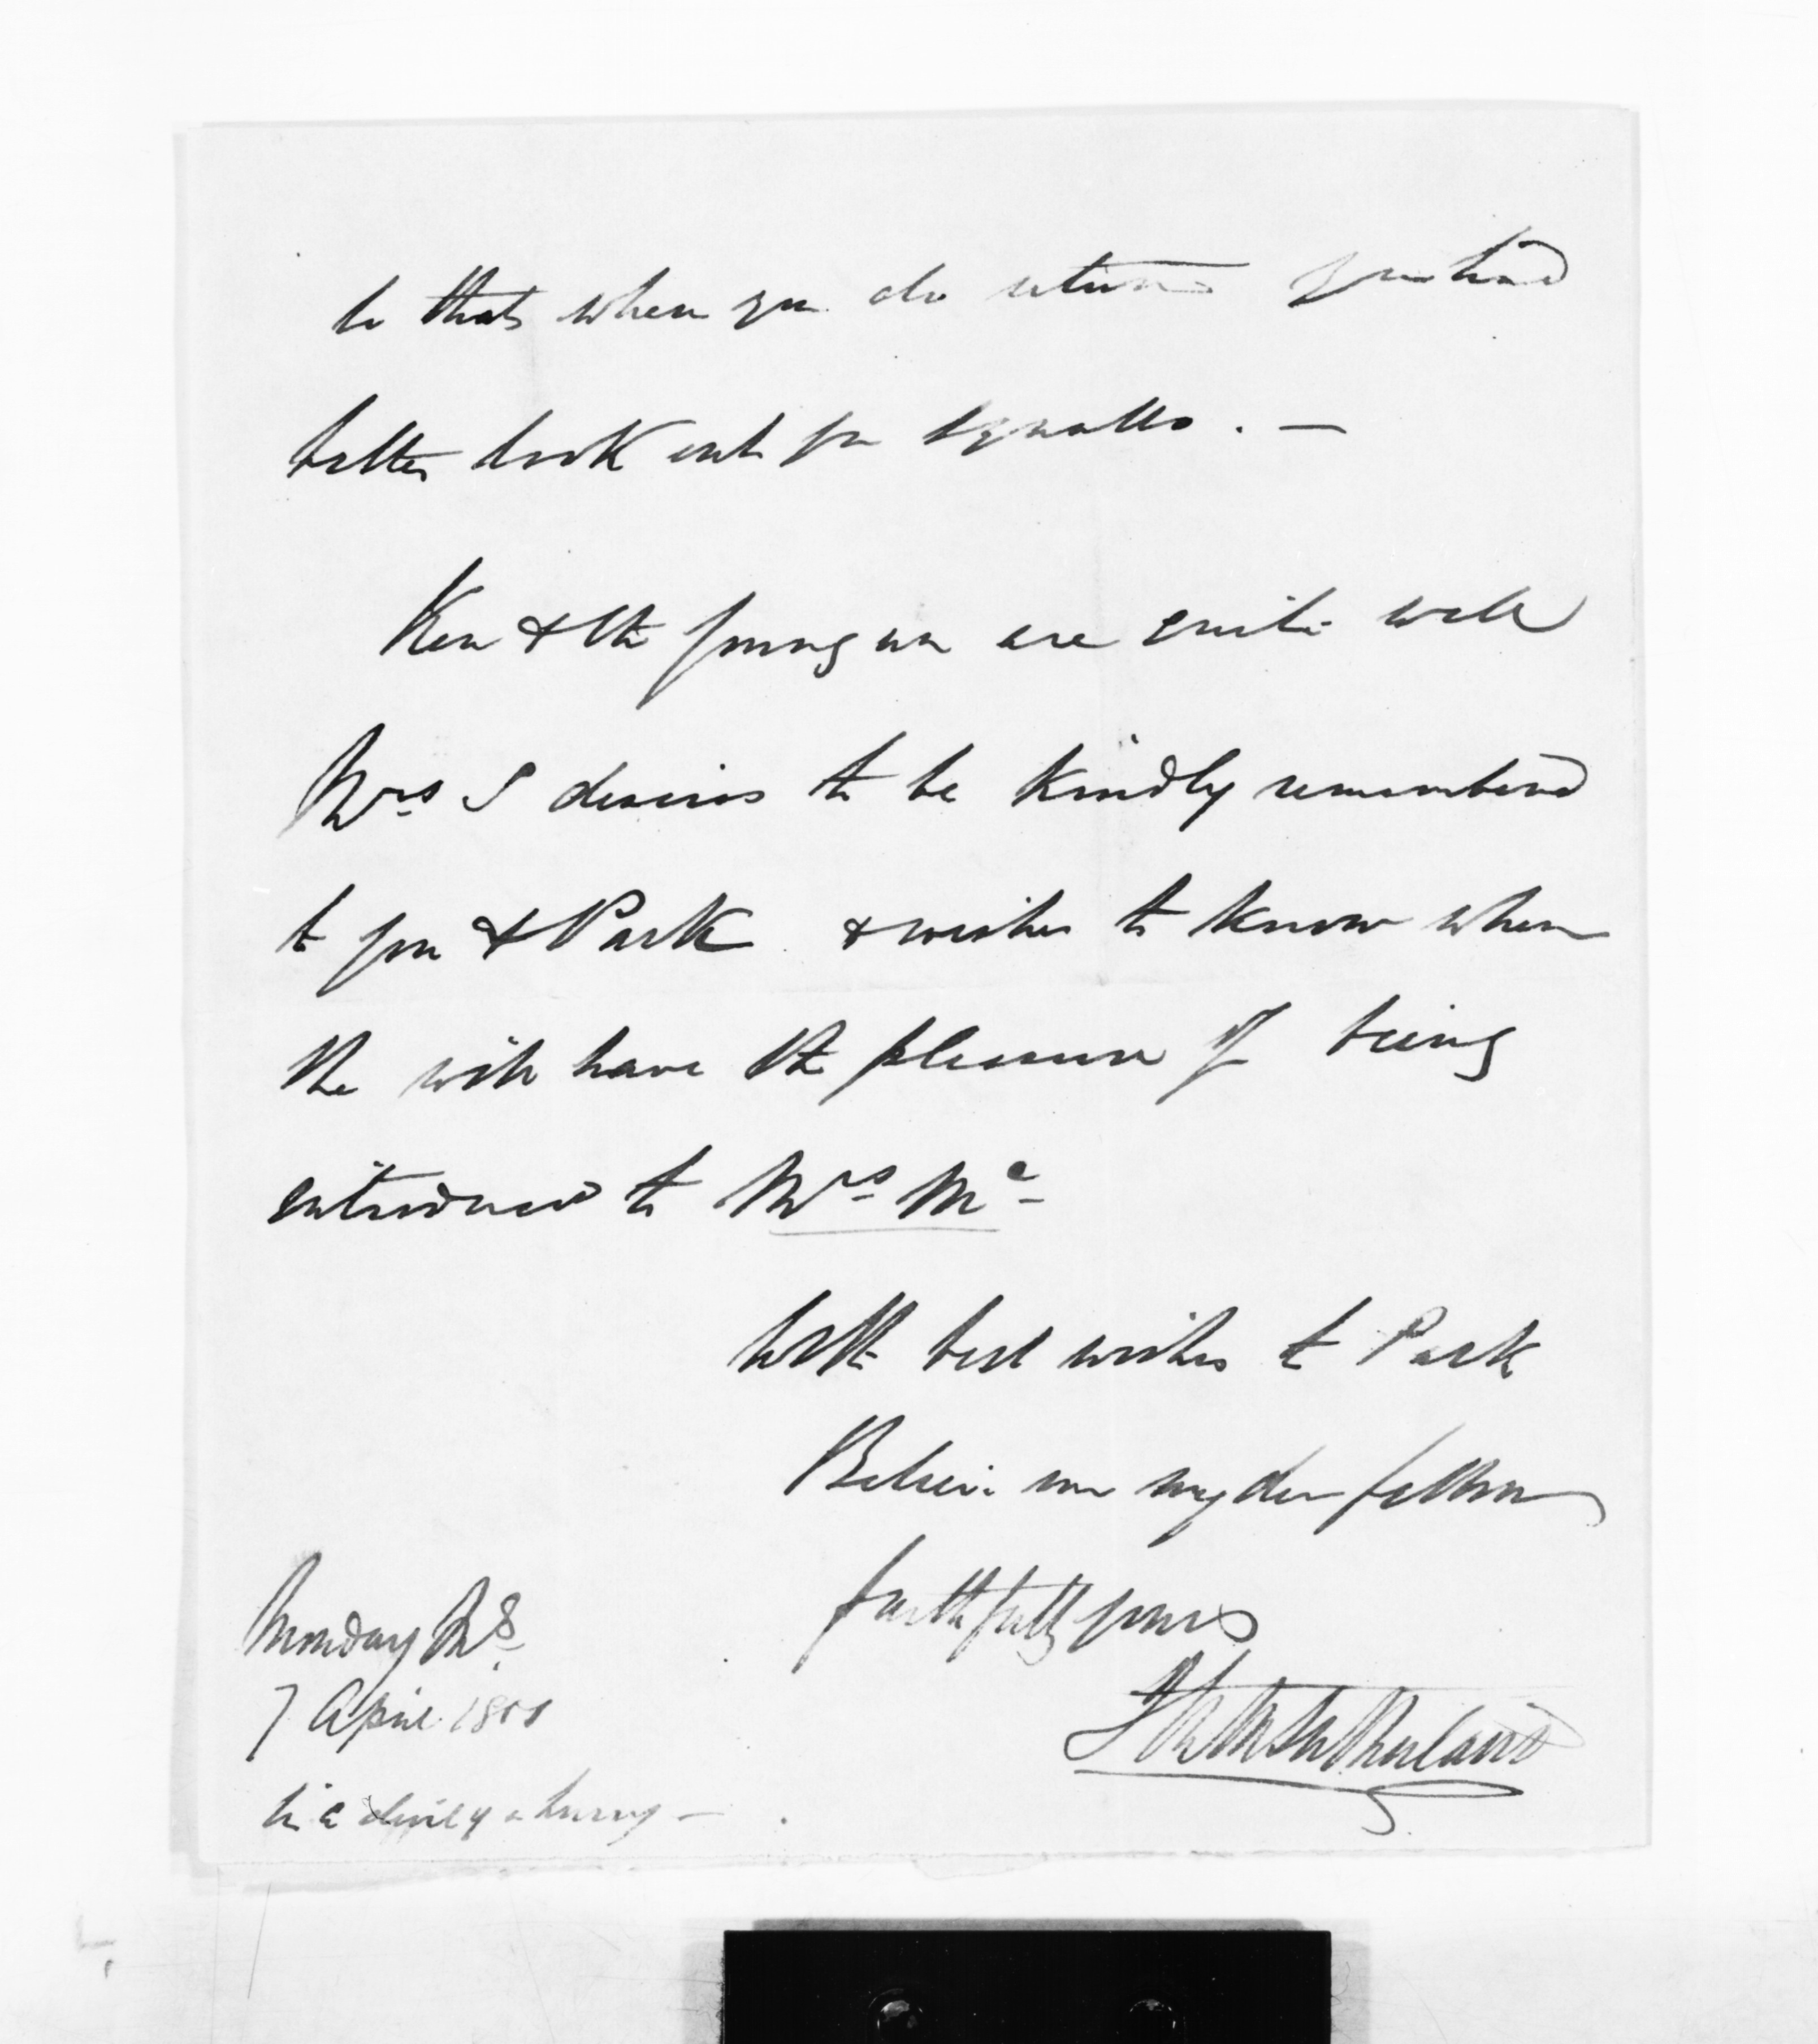 so that when you do return you had
better look out for squalls. —
Ken & the young un are quite well
Mrs S desires to be kindly remembered
to you & Park & wishes to know when
she will have the pleasure of being
introduced to Mrs Mc
With best wishes to Park
Believe me my dear fellow
faithfully yours
Sutherland
Monday
7 April
in a devil of a hurry —